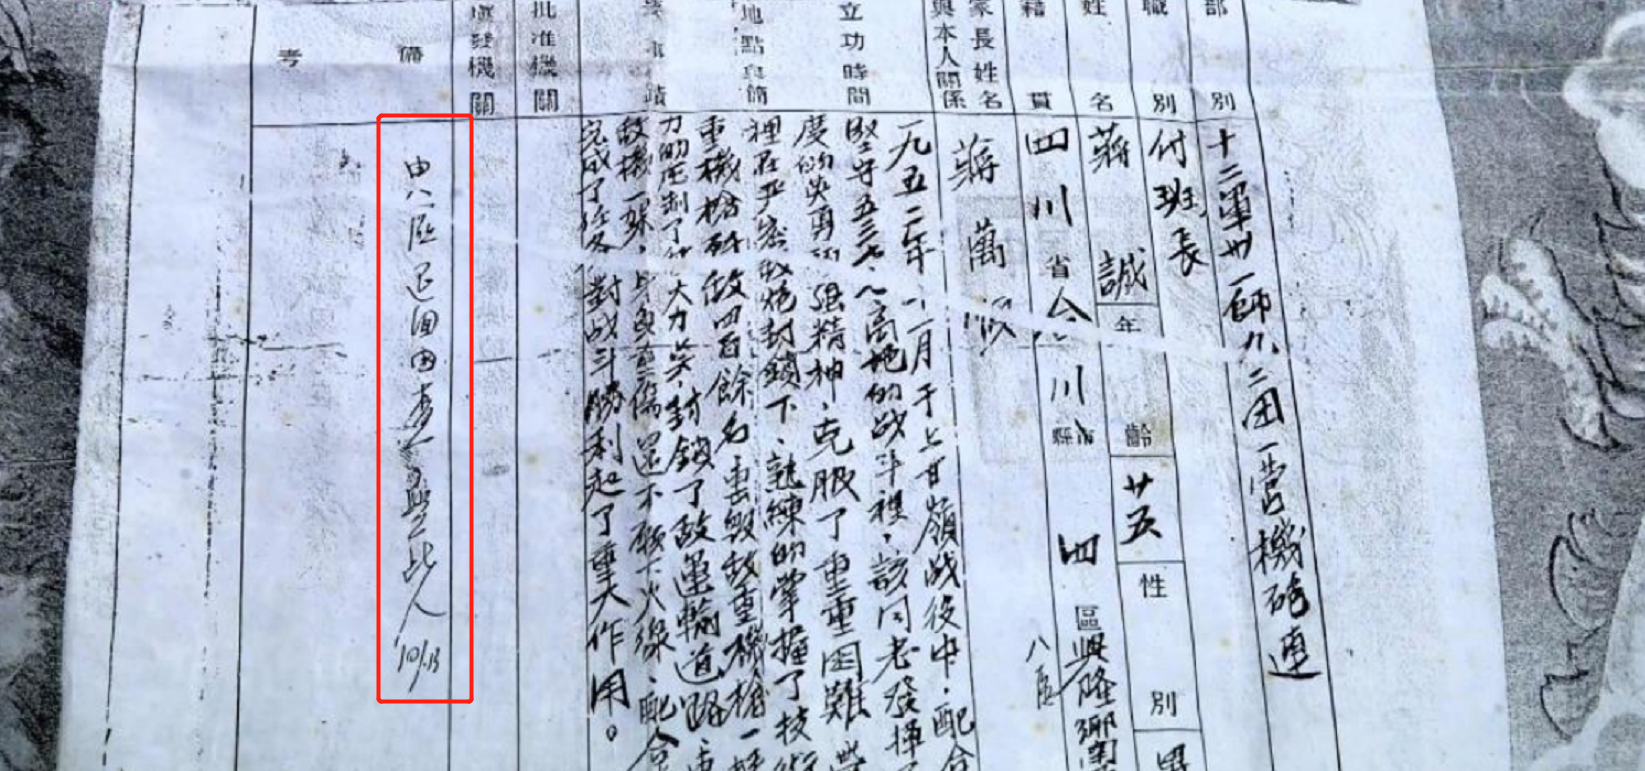 部別
十二軍卅一師九二团一营機砲連
職別
付班長
姓名
蔣誠
年齡
廿五
性別
男
籍貫
四川省合川縣市
四區興隆鄉
八區
家長姓名與本人關係
蔣萬
立功時間
地點與簡
要事蹟
一九五二年十一月于上甘嶺战役中，配合
坚守五三七、八高地的战斗裡，該同志發揮了
度的英勇頑强精神，克服了重重困難
裡在严密敌炮封鎖下，熟練的掌握了技術
重機槍斃敌四百餘名击毁敌重機槍一挺
力的压制了大力封鎖了敌運輸道路，
敌機一架，身負重傷還不願下火線，配合
完成了任务，對战斗勝利起了重大作用。
批准機關
填發機關
備考
由八區退回因查無此人
10/13